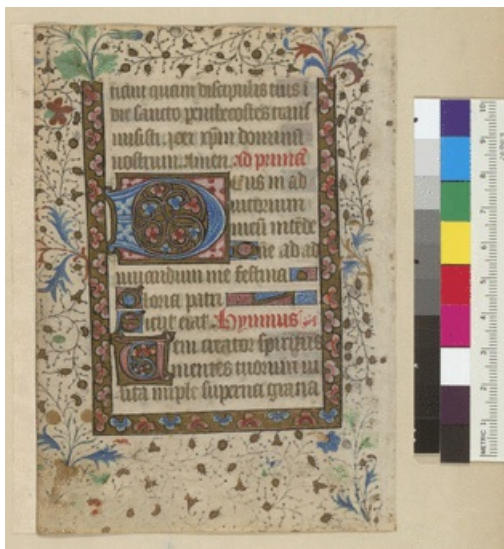 quem discipulis tuis i
die sancto penthecostes trans
misisti. per xpm dominu
nostrum. Amen. Ad prima
Deus in ad
iutorium
meu intende
Dne ad ad
iuuandum me festina
Gloria patri
Sicut erat. Hymnus
Veni creator spiritus
mentes tuorum ui
sita imple superna gratia
METRIC 1 2 3 4 5 6 7 8 9 10